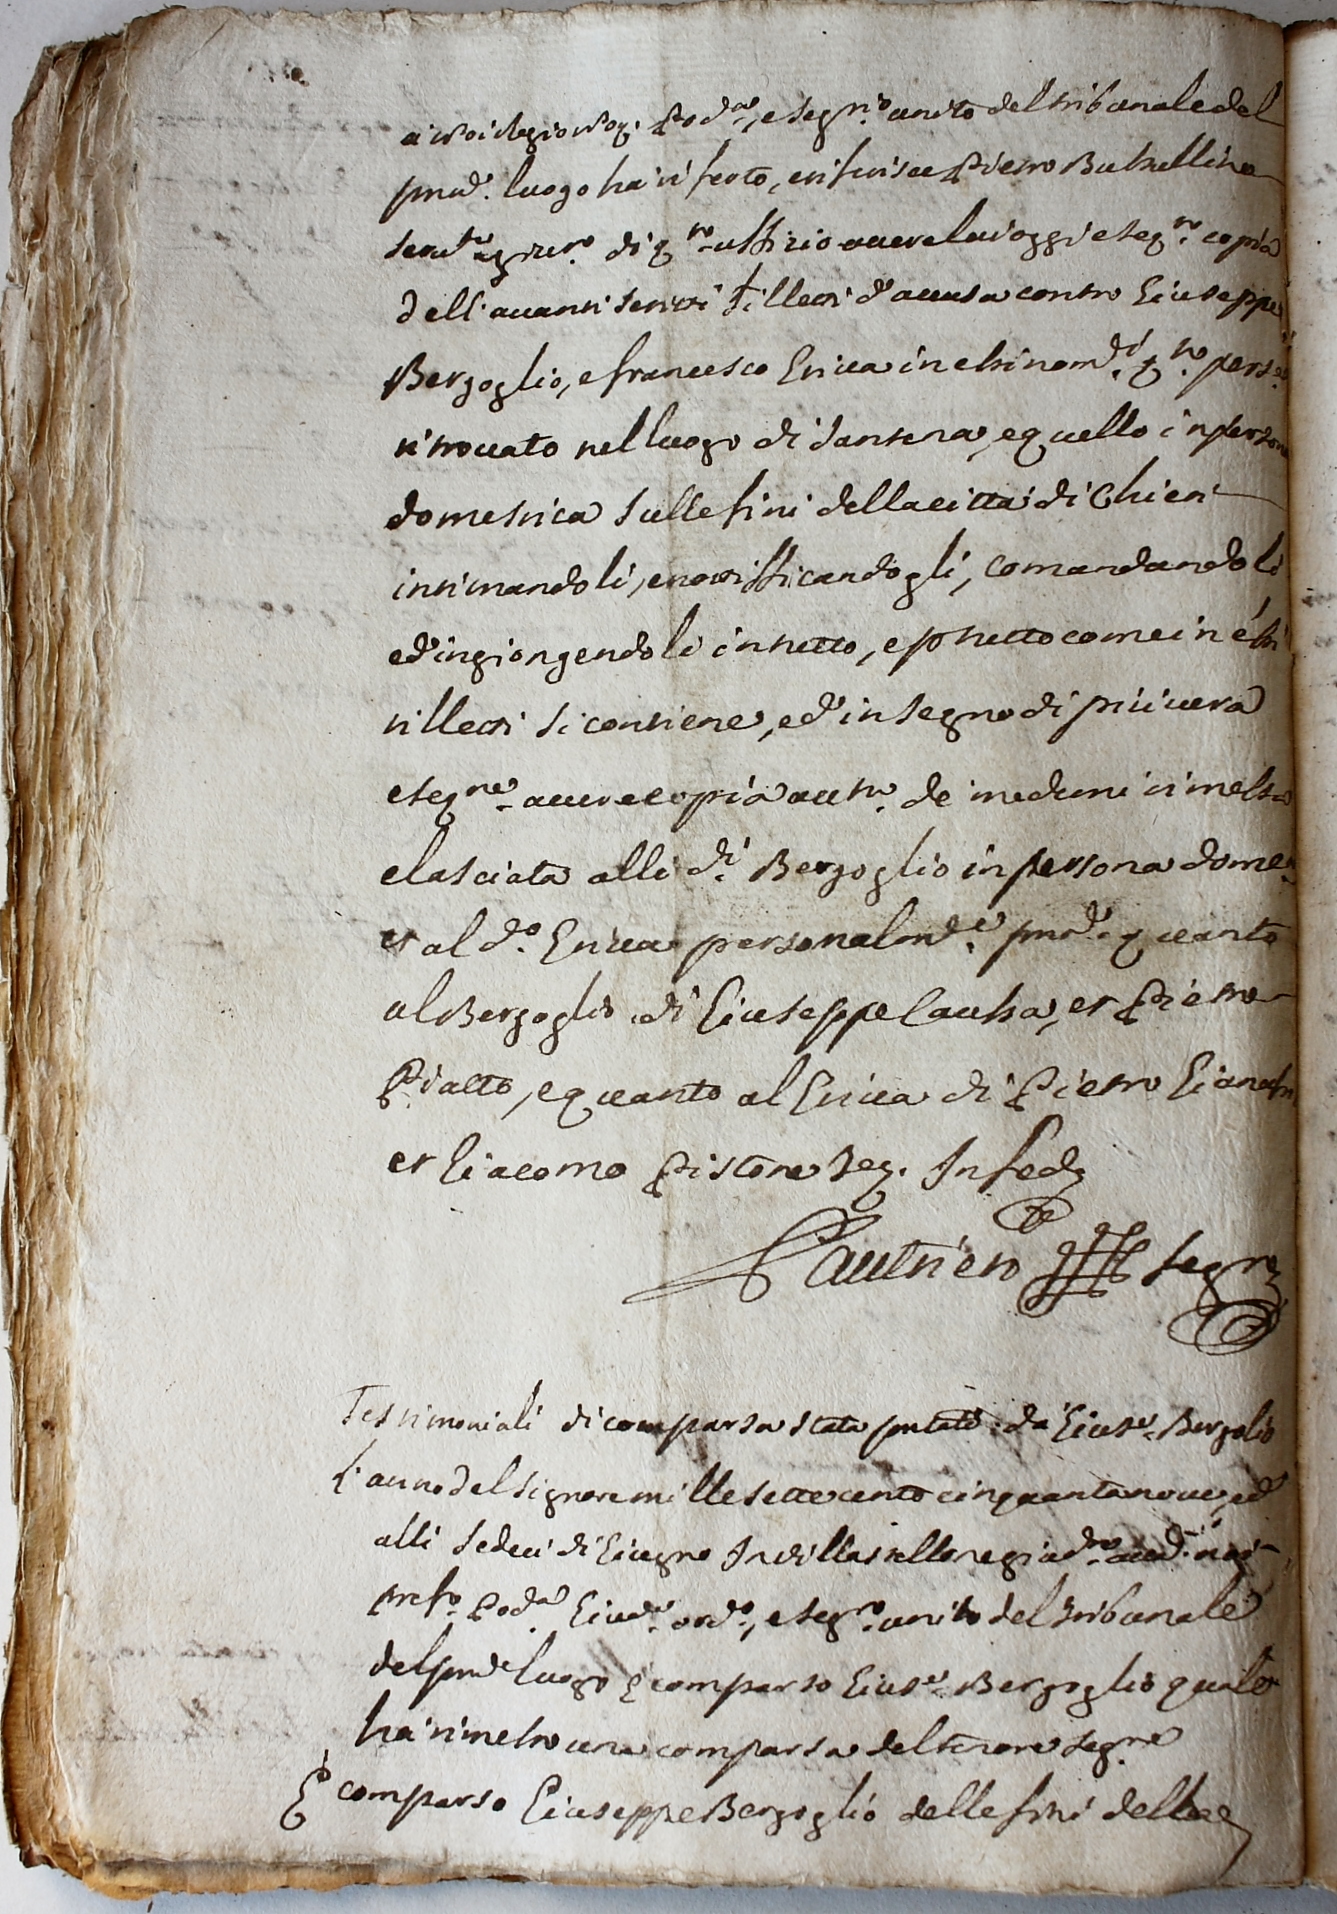 a noi Regio Not. Podà, e segr.º unito del tribunale del
pred. luogo ha riferto, e riferisce Pietro Butrellino
serv.te giur.to di q.to uffizio avere lui oggi eseg.to copia
dell'avanti scritti tilletti d'accusa contro Giuseppe
Bergoglio, e francesco Enica in essi nom.ti q.to pers.
ritrovato nel luogo di Santena, e quello in persona
domestica sulle fini della città di Chieri
intimandoli, e notifficandogli, comandandoli
ed ingiongendoli in tutto, e p tutto come in essi
tilletti si contiene, ed in segno di più vera
eseg.ne avere copia aut.ca de medemi rimessa
e lasciata alli d.i Bergoglio in persona dome.ca
et al d.o Enica personalm.te pnti quanto
al Bergoglio di Giuseppe Caussa, et Pietro
Piatto, e quanto al Enica di Pietro
et Giacomo Pistone Seg. In fede
Gautiero segr.
Testimoniali di comparsa stata pntata da Gius.e Bergolio
L'anno del Signore mille settecento cinquantanove, ed
alli sedeci di Giugno In villastellone giud.te avanti noi
pref.o Podà Giud.e ord.o, e segr.o unito del tribunale
del pred.o luogo è comparso Gius.e Bergoglio quale
ha rimesso una comparsa del tenore seg.ne
È comparso Giuseppe Bergoglio delle fini della